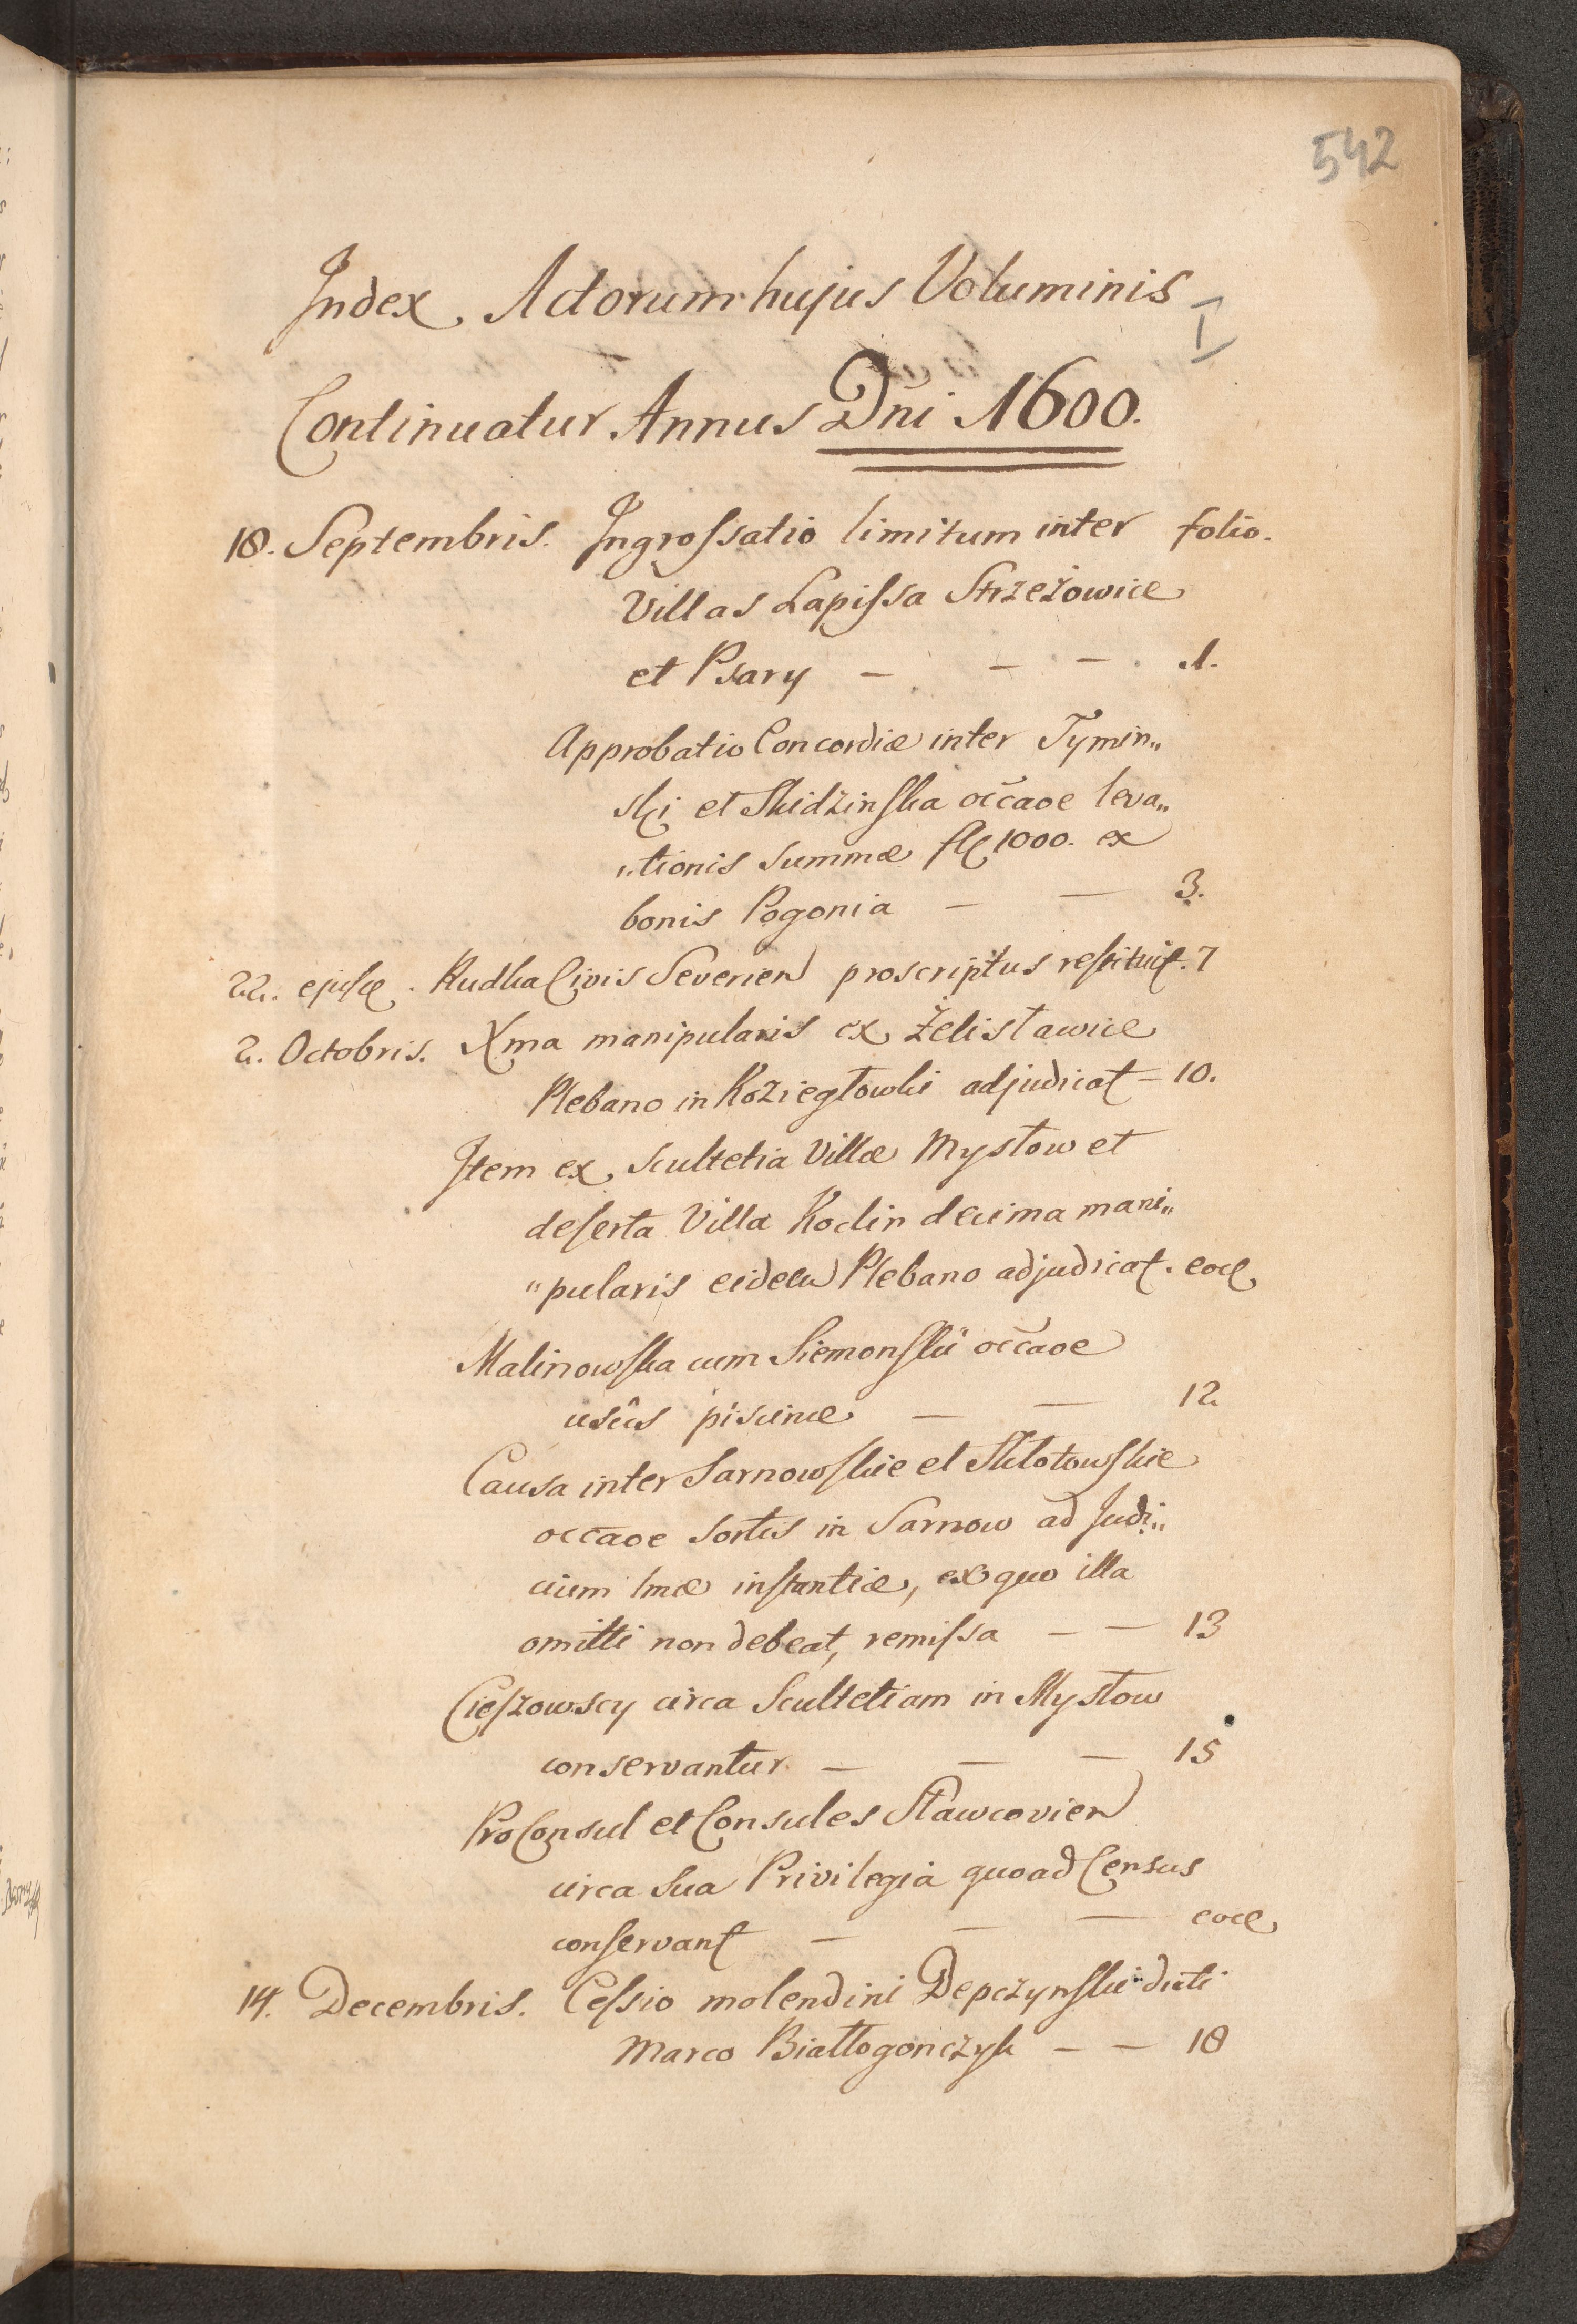 542
Index Actorum hujus Voluminis
I
Continuatur Annus Dñi 1600.
18. Septembris. Ingrossatio limitum inter folio.
Villas Łapissa Strzeżowice
et Psary — — — 1.
Approbatio Concordiæ inter Tymin„
ski et Skidzinska occãoe leva„
„tionis summæ fl 1000. ex
bonis Pogonia — — 3.
22. ejusd. Rudka Civis Severien proscriptus restituit. 7
2. Octobris. Xma manipularis ex Żelisławice
Plebano in Koziegłowki adjudicat — 10.
Item ex Scultetia Villæ Mysłow et
deserta Villa Koclin decima mani„
„pularis eidem Plebano adjudicat. eod
Malinowska cum Siemonskii occãoe
usûs piscinæ — — 12
Causa inter Sarnowskie et Skłotowskie
occãoe sortis in Sarnow ad Judi„
cium 1mæ instantiæ, ex quo illa
omitti non debeat, remissa — — 13
Cieszowscy circa Scultetiam in Mysłow
conservantur — — — 15
ProConsul et Consules Sławcovien
circa sua Privilegia quoad Census
conservant — — — eod
14. Decembris. Cessio molendini Depczynski dicti
Marco Białłogonczyk — — 18